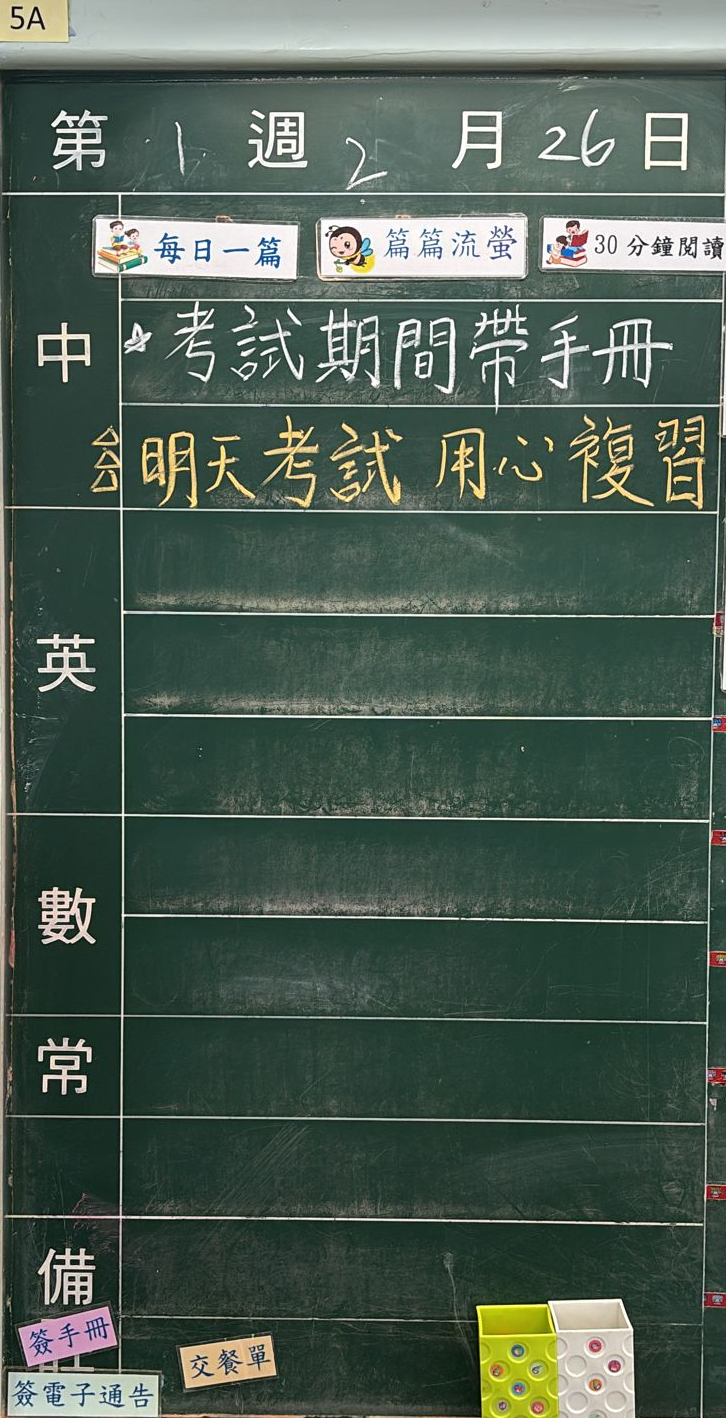 5A
第 1 週 2 月 26 日
每日一篇 篇篇流螢 30 分鐘閱讀
中
考試期間帶手冊
明天考試 用心複習
英
數
常
備
簽手冊
交餐單
簽電子通告